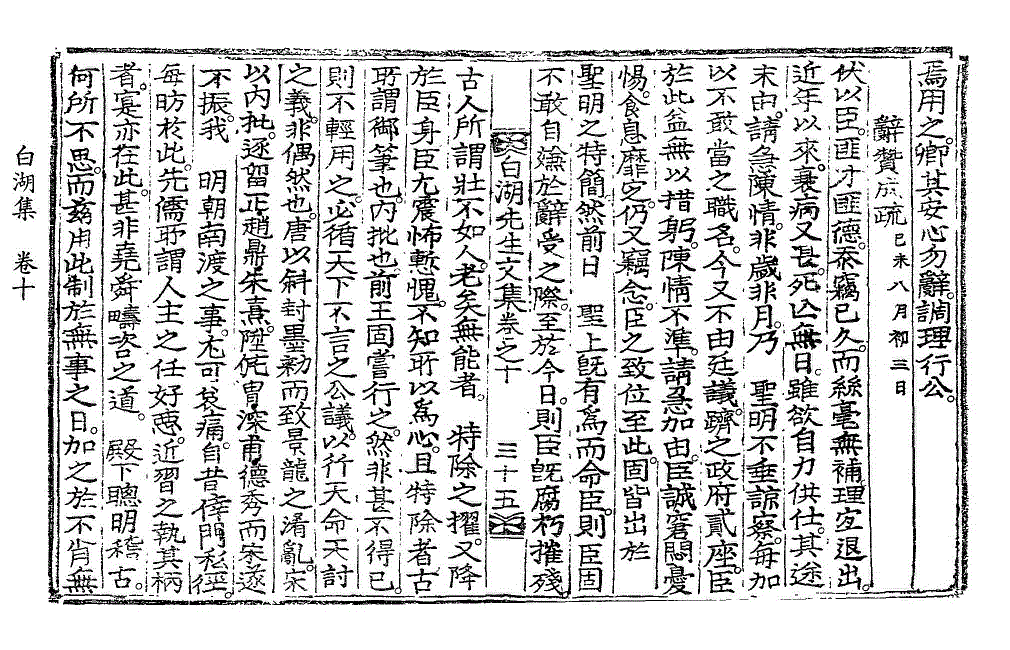 焉用之。卿其安心勿辭。調理行公。
辭贊成疏 己未八月初三日
伏以臣。匪才匪德。忝竊已久。而絲毫無補。理宜退出。
近年以來。衰病又甚。死亡無日。雖欲自力供仕。其途
末由。請急陳情。非歲非月。乃 聖明不垂諒察。每加
以不敢當之職名。今又不由廷議。躋之政府貳座。臣
於此益無以措躬。陳情不準。請急加由。臣誠窘悶憂
惕。食息靡定。仍又竊念。臣之致位至此。固皆出於
聖明之特簡。然前日 聖上旣有爲而命臣。則臣固
不敢自嫌於辭受之際。至於今日。則臣旣腐朽摧殘
白湖先生文集卷之十 三十五
古人所謂壯不如人。老矣無能者。 特除之擢。又降
於臣身。臣尤震怖慙愧。不知所以爲心。且特除者。古
所謂御筆也。內批也。前王固嘗行之。然非甚不得已。
則不輕用之。必循天下不言之公議。以行天命天討
之義。非偶然也。唐以斜封墨勑而致景龍之淆亂。宋
以內批。逐留正趙鼎朱熹。陞侂冑深甫德秀而宋遂
不振。我 明朝南渡之事。尤可哀痛。自昔倖門私徑。
每昉於此。先儒所謂人主之任好惡。近習之執其柄
者。寔亦在此。甚非堯舜疇咨之道。 殿下聰明稽古。
何所不思。而玆用此制於無事之日。加之於不肖無
白湖集 卷十